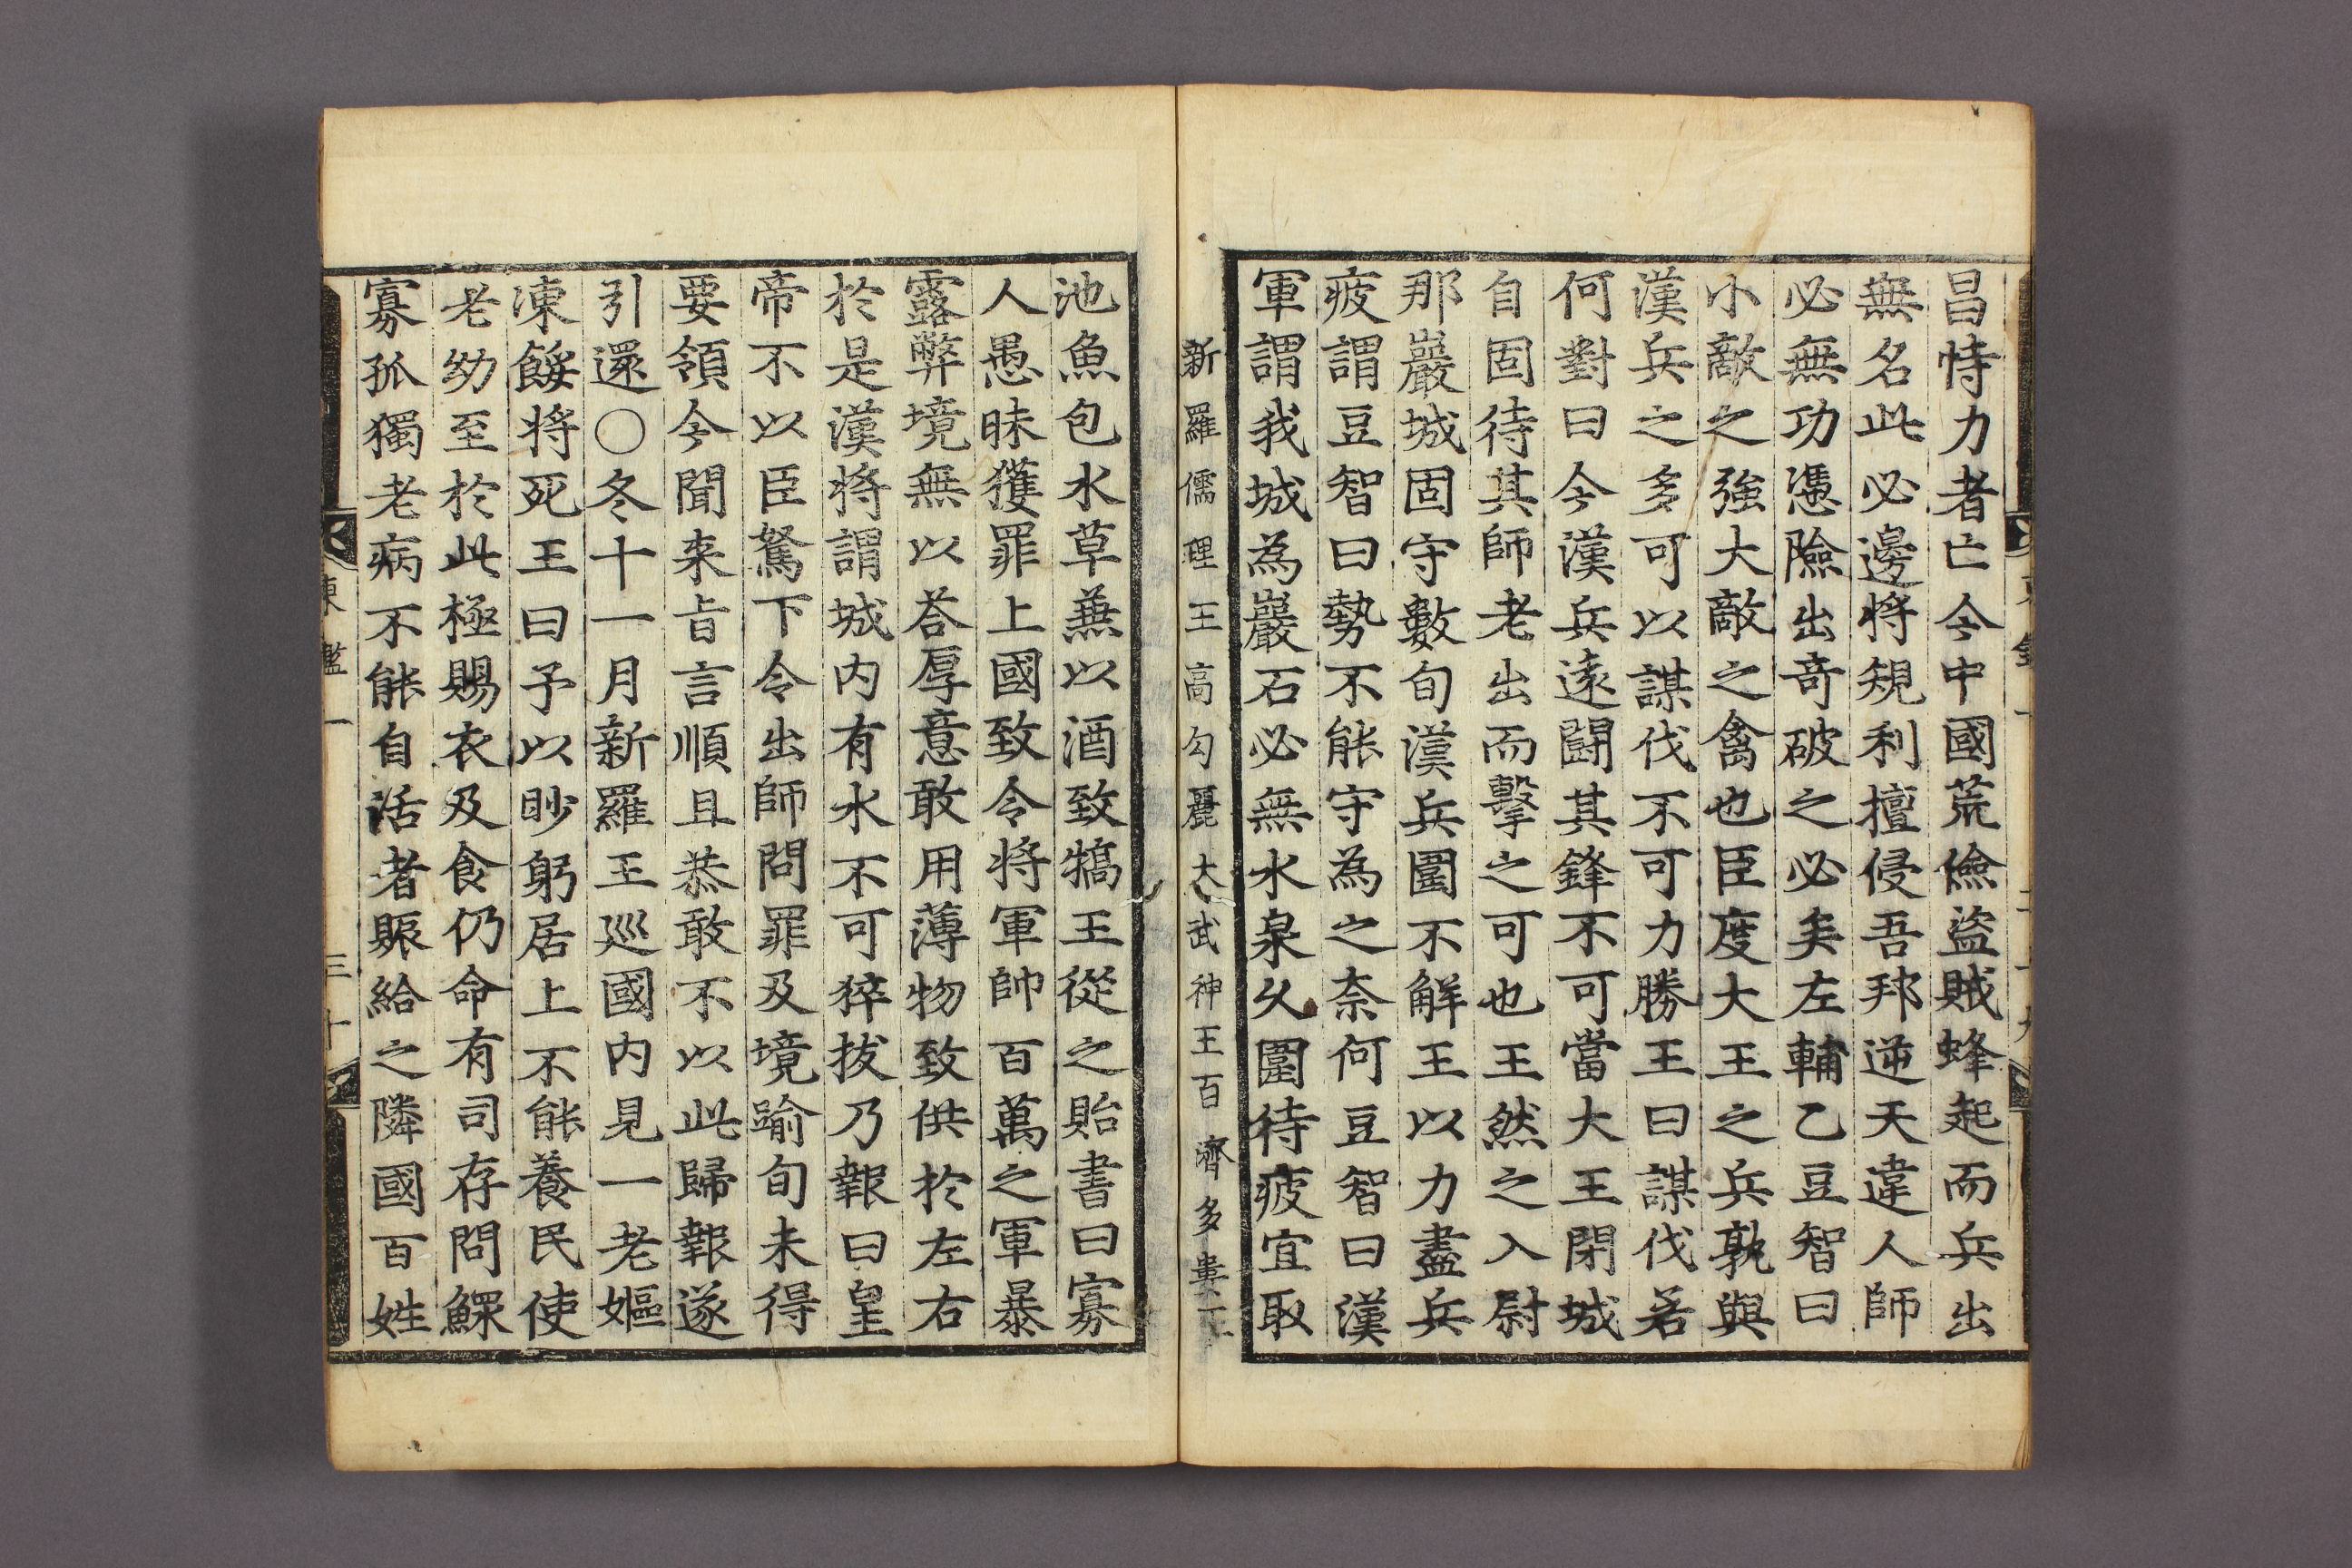 昌恃力者亡今中國荒儉盜賊蜂起而兵出
無名此必邊將規利擅侵吾邦逆天違人師
必無功憑險出奇破之必矣左輔乙豆智曰
小敵之強大敵之禽也臣度大王之兵孰與
漢兵之多可以謀伐不可力勝王曰謀伐若
何對曰今漢兵遠鬪其鋒不可當大王閉城
自固待其師老出而擊之可也王然之入尉
那巖城固守數旬漢兵圍不解王以力盡兵
疲謂豆智曰勢不能守為之奈何豆智曰漢
軍謂我城為巖石必無水泉久圍待疲宜取
新羅儒理王高勾麗大武神王百濟多婁王
池魚包水草兼以酒致犒王從之貽書曰寡
人愚昧獲罪上國致令將軍帥百萬之軍暴
露弊境無以荅厚意敢用薄物致供於左右
於是漢將謂城内有水不可猝拔乃報曰皇
帝不以臣駑下令出師問罪及境踰旬未得
要領今聞来旨言順且恭敢不以此歸報遂
引還○冬十一月新羅王巡國内見一老嫗
凍餒將死王曰予以眇躬居上不能養民使
老幼至於此極賜衣及食仍命有司存問鰥
寡孤獨老病不能自活者賑給之隣國百姓
東鑑一 三十